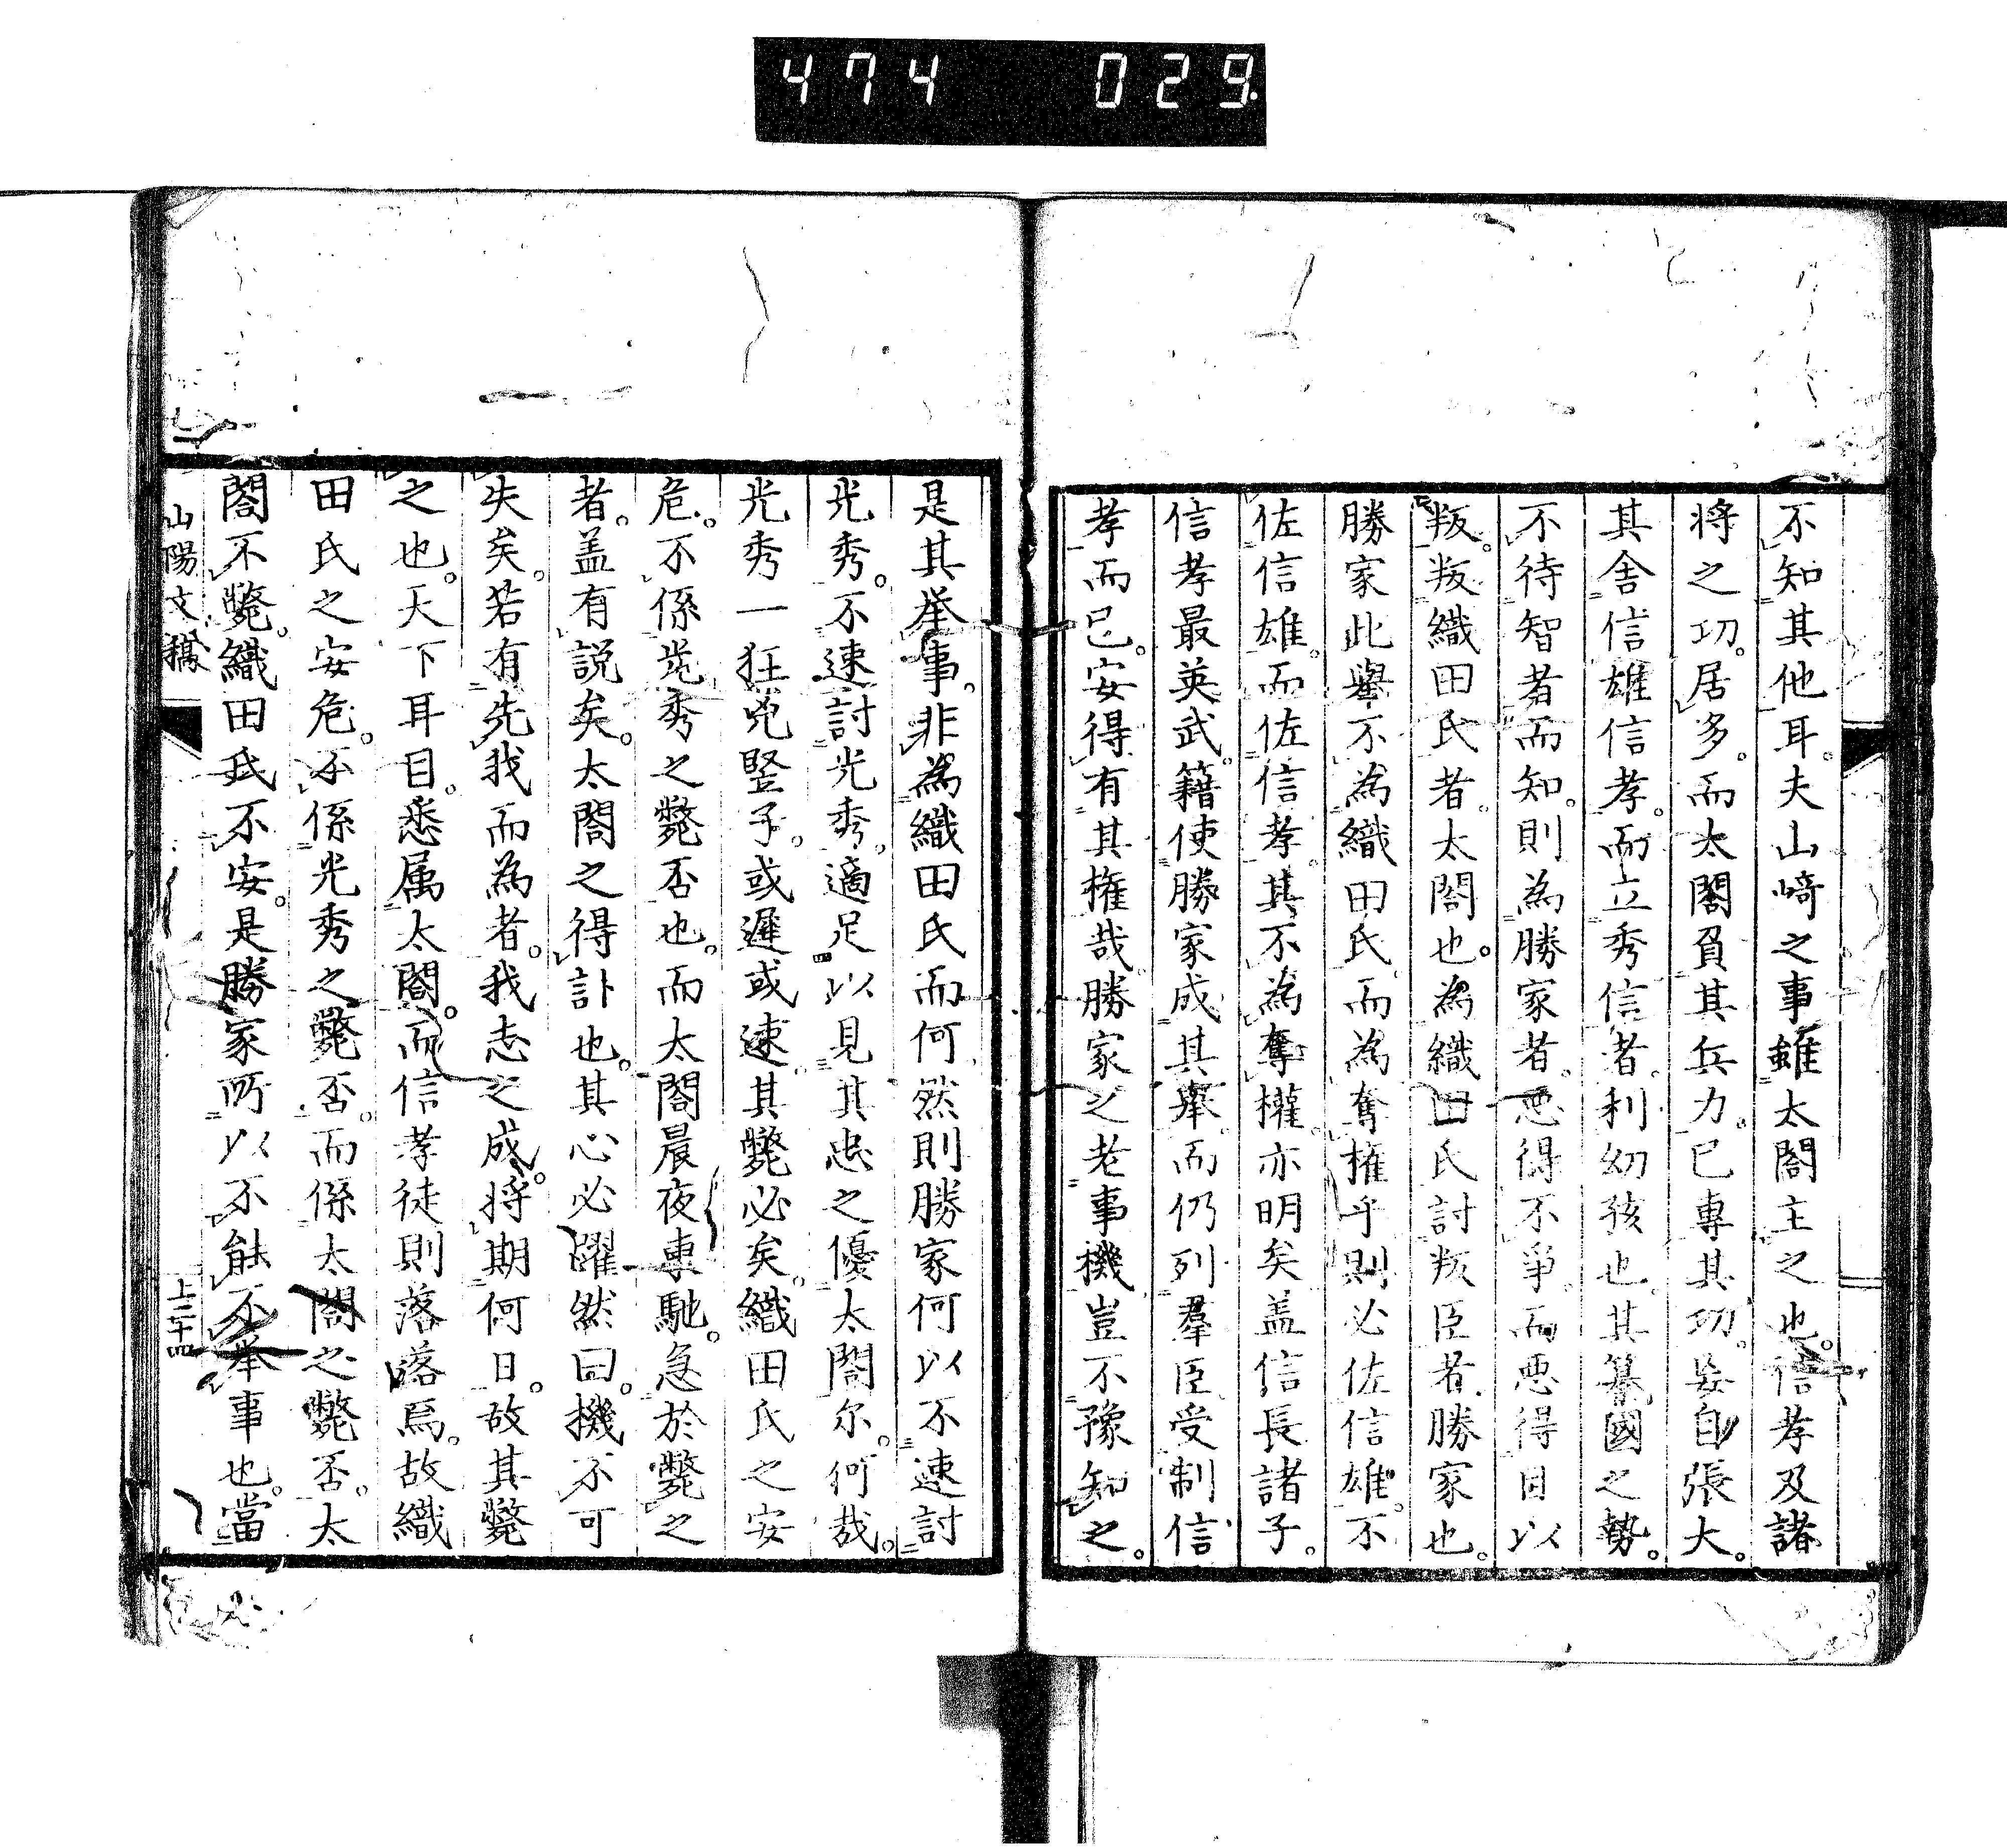 474 029
不知其他耳。夫山﨑之事雖太閤主之也。信孝及諸
将之功。居多。而太閤負其兵力。已專其功。妄自張大。
其舍信雄信孝。而立秀信者。利幼孩也。其簒國之勢。
不待智者而知。則為勝家者。悪得不爭。而悪得目以
叛。叛織田氏者。太閤也。為織田氏討叛臣者。勝家也。
勝家此舉不為織田氏。而為奪権乎。則必佐信雄。不
佐信雄。而佐信孝。其不為奪權。亦明矣盖信長諸子。
信孝最英武。籍使勝家成其舉。而仍列羣臣受制信
孝而已。安得有其権哉。勝家之老事機豈不豫知之。
是其挙事。非為織田氏而何。然則勝家何以不速討
光秀。不速討光秀。適足以見其忠之優太閤尔。何哉。
光秀一狂兇豎子。或遲或速。其斃必矣。織田氏之安
危。不係光秀之斃否也。而太閤晨夜東馳。急於斃之
者。盖有説矣。太閤之得訃也。其心必躍然曰。機不可
失矣。若有先我而為者。我志之成。将期何日。故其斃
之也。天下耳目。悉属太閤。而信孝徒則落落焉。故織
田氏之安危。不係光秀之斃否。而係太閤之斃否。太
閤不斃。織田氏不安。是勝家所以不能不挙事也。當
山陽文稿
上二十四